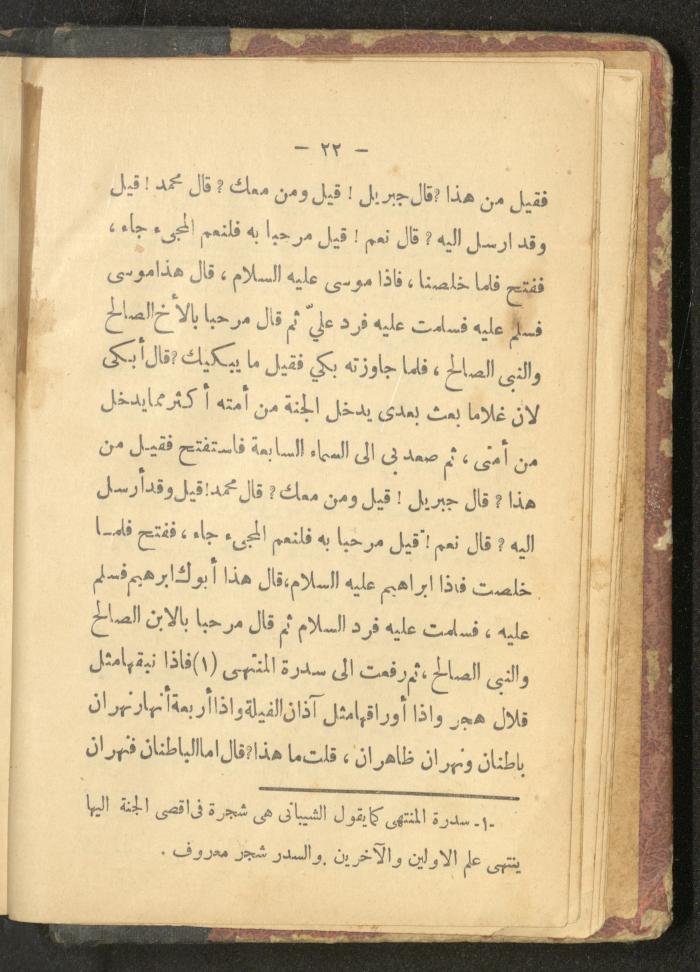 - ٢٢ -
فقيل من هذا ? قال جبريل ! قيل ومن معك ? قال محمد ! قيل
وقد ارسل اليه ? قال نعم ! قيل مرحبا به فلنعم المجيء جاء ،
ففتح فلما خلصنا ، فاذا موسى عليه السلام ، قال هذا موسى
فسلم عليه فسلمت عليه فرد عليّ ثم قال مرحبا بالأخ الصالح
والنبي الصالح ، فلما جاوزته بكي فقيل ما يبكيك ? قال أبكى
لان غلاما بعث بعدى يدخل الجنة من أمته أكثر مما يدخل
من أمتى ، ثم صعد بى الى السماء السابعة فاستفتح فقيل من
هذا ? قال جبريل ! قيل ومن معك ? قال محمد ! قيل وقد أرسل
اليه ? قال نعم ! قيل مرحبا به فلنعم المجيء جاء ، ففتح فلما
خلصت فاذا ابراهيم عليه السلام ، قال هذا أبوك ابرهيم فسلم
عليه ، فسلمت عليه فرد السلام ثم قال مرحبا بالابن الصالح
والنبي الصالح ، ثم رفعت الى سدرة المنتهى (١) فاذا نبقها مثل
قلال هجر واذا أوراقها مثل آذان الفيلة واذا أربعة أنهار نهران
باطنان ونهران ظاهران ، قلت ما هذا ? قال اما الباطنان فنهران
-١- سدرة المنتهى كما يقول الشيبانى هي شجرة فى اقصى الجنة اليها
ينتهى علم الاولين والآخرين والسدر شجر معروف .